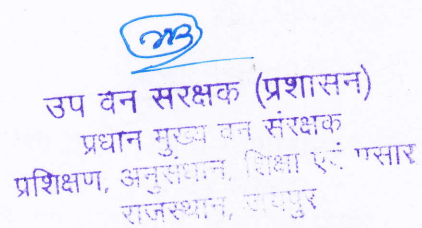 उप वन सरक्षक (प्रशासन)
प्रधान मुख्य वन संरक्षक
प्रशिक्षण, अनुसंधान, शिक्षा एवं प्रसार
राजस्थान, जयपुर